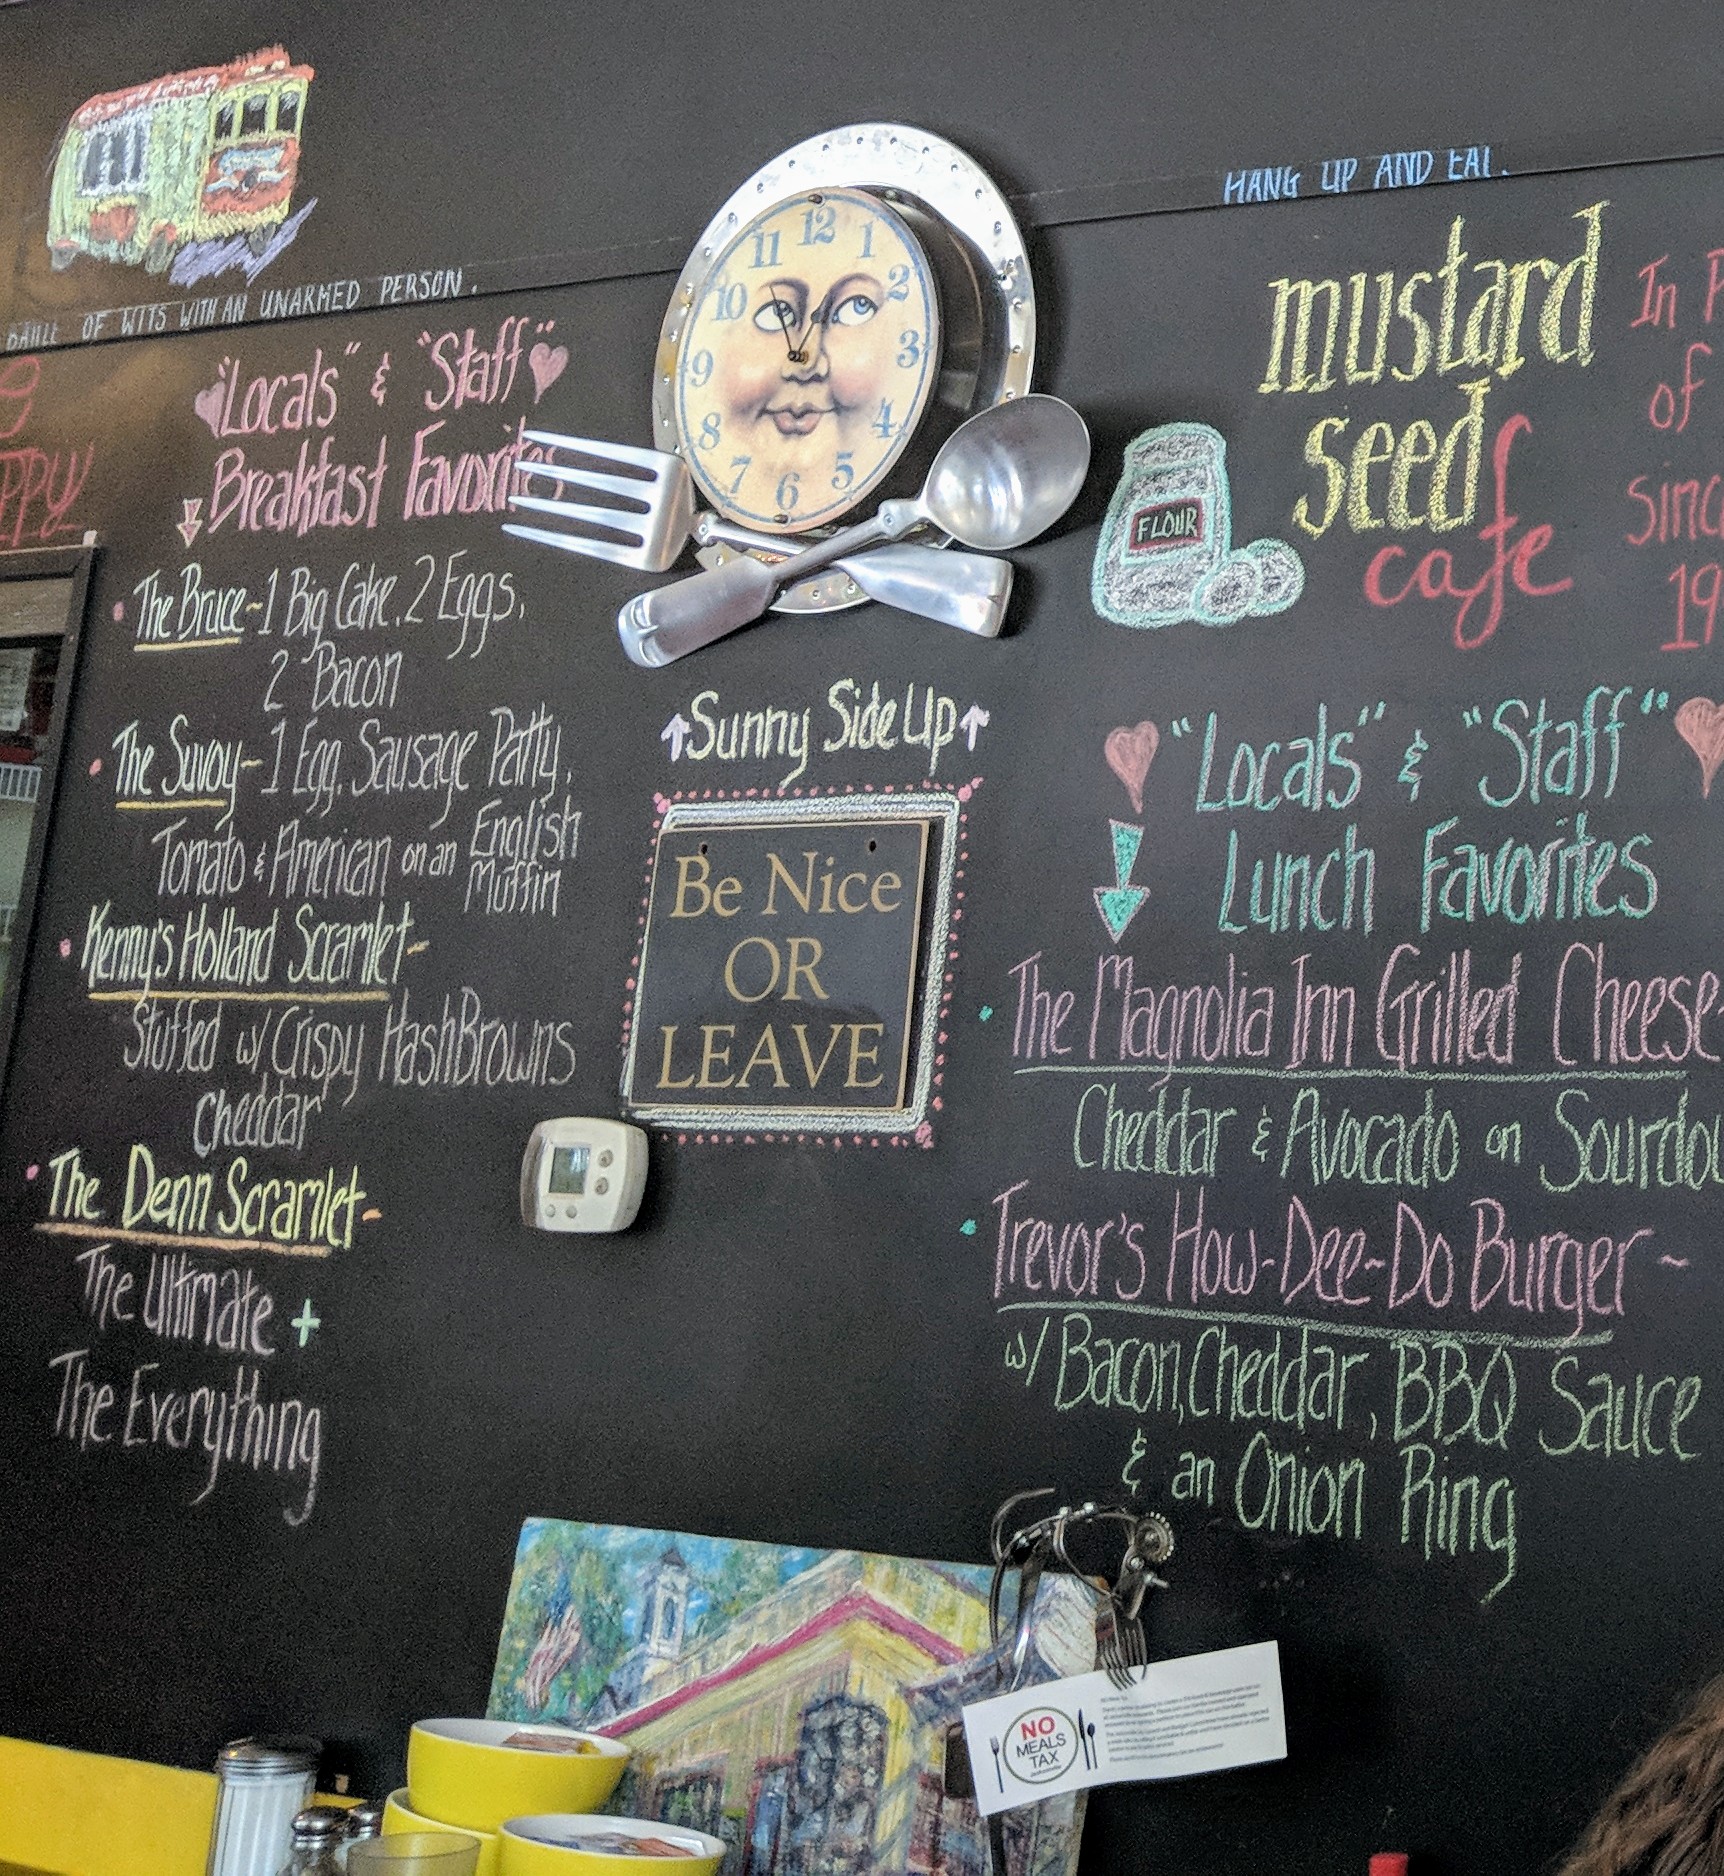 OF WITS WITH AN UNARMED PERSON.
"Locals" & "Staff"
Breakfast Favorites
The Bruce~1 Big Cake, 2 Eggs,
2 Bacon
The Suvoy~1 Egg, Sausage Patty,
Tomato & American on an English
Muffin
Kenny's Holland Scramlet~
Stuffed w/ Crispy HashBrowns
Cheddar
The Denn Scramlet~
The Ultimate +
The Everything
11 12 1
10 2
9 3
8 4
7 6 5
Sunny Side Up
Be Nice
OR
LEAVE
HANG UP AND EAT.
mustard
seed
cafe
FLOUR
In
of
19
"Locals" & "Staff"
Lunch Favorites
The Magnolia Inn Grilled Cheese~
Cheddar & Avocado on Sourdou
Trevor's How-Dee-Do Burger~
w/ Bacon, Cheddar, BBQ Sauce
& an Onion Ring
NO
MEALS
TAX